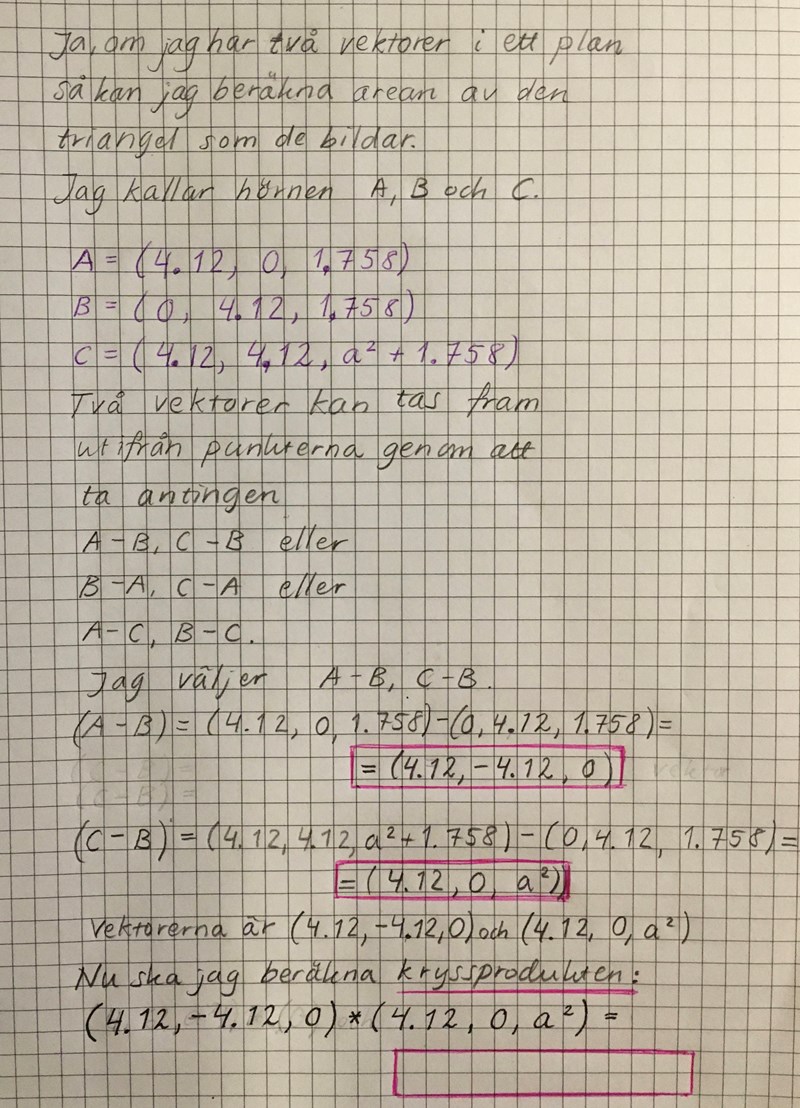 Ja, om jag har två vektorer i ett plan
så kan jag beräkna arean av den
triangel som de bildar.
Jag kallar hörnen A, B och C.
A = (4.12, 0, 1,758)
B = (0, 4.12, 1,758)
C = (4.12, 4,12, a² + 1.758)
Två vektorer kan tas fram
utifrån punkterna genom att
ta antingen
A - B, C - B eller
B - A, C - A eller
A - C, B - C.
Jag väljer A - B, C - B.
(A - B) = (4.12, 0, 1.758) - (0, 4.12, 1.758) =
= (4.12, -4.12, 0)
(C - B) = (4.12, 4.12, a² + 1.758) - (0, 4.12, 1.758) =
= (4.12, 0, a²)
Vektorerna är (4.12, -4.12, 0) och (4.12, 0, a²)
Nu ska jag beräkna kryssprodukten:
(4.12, -4.12, 0) * (4.12, 0, a²) =